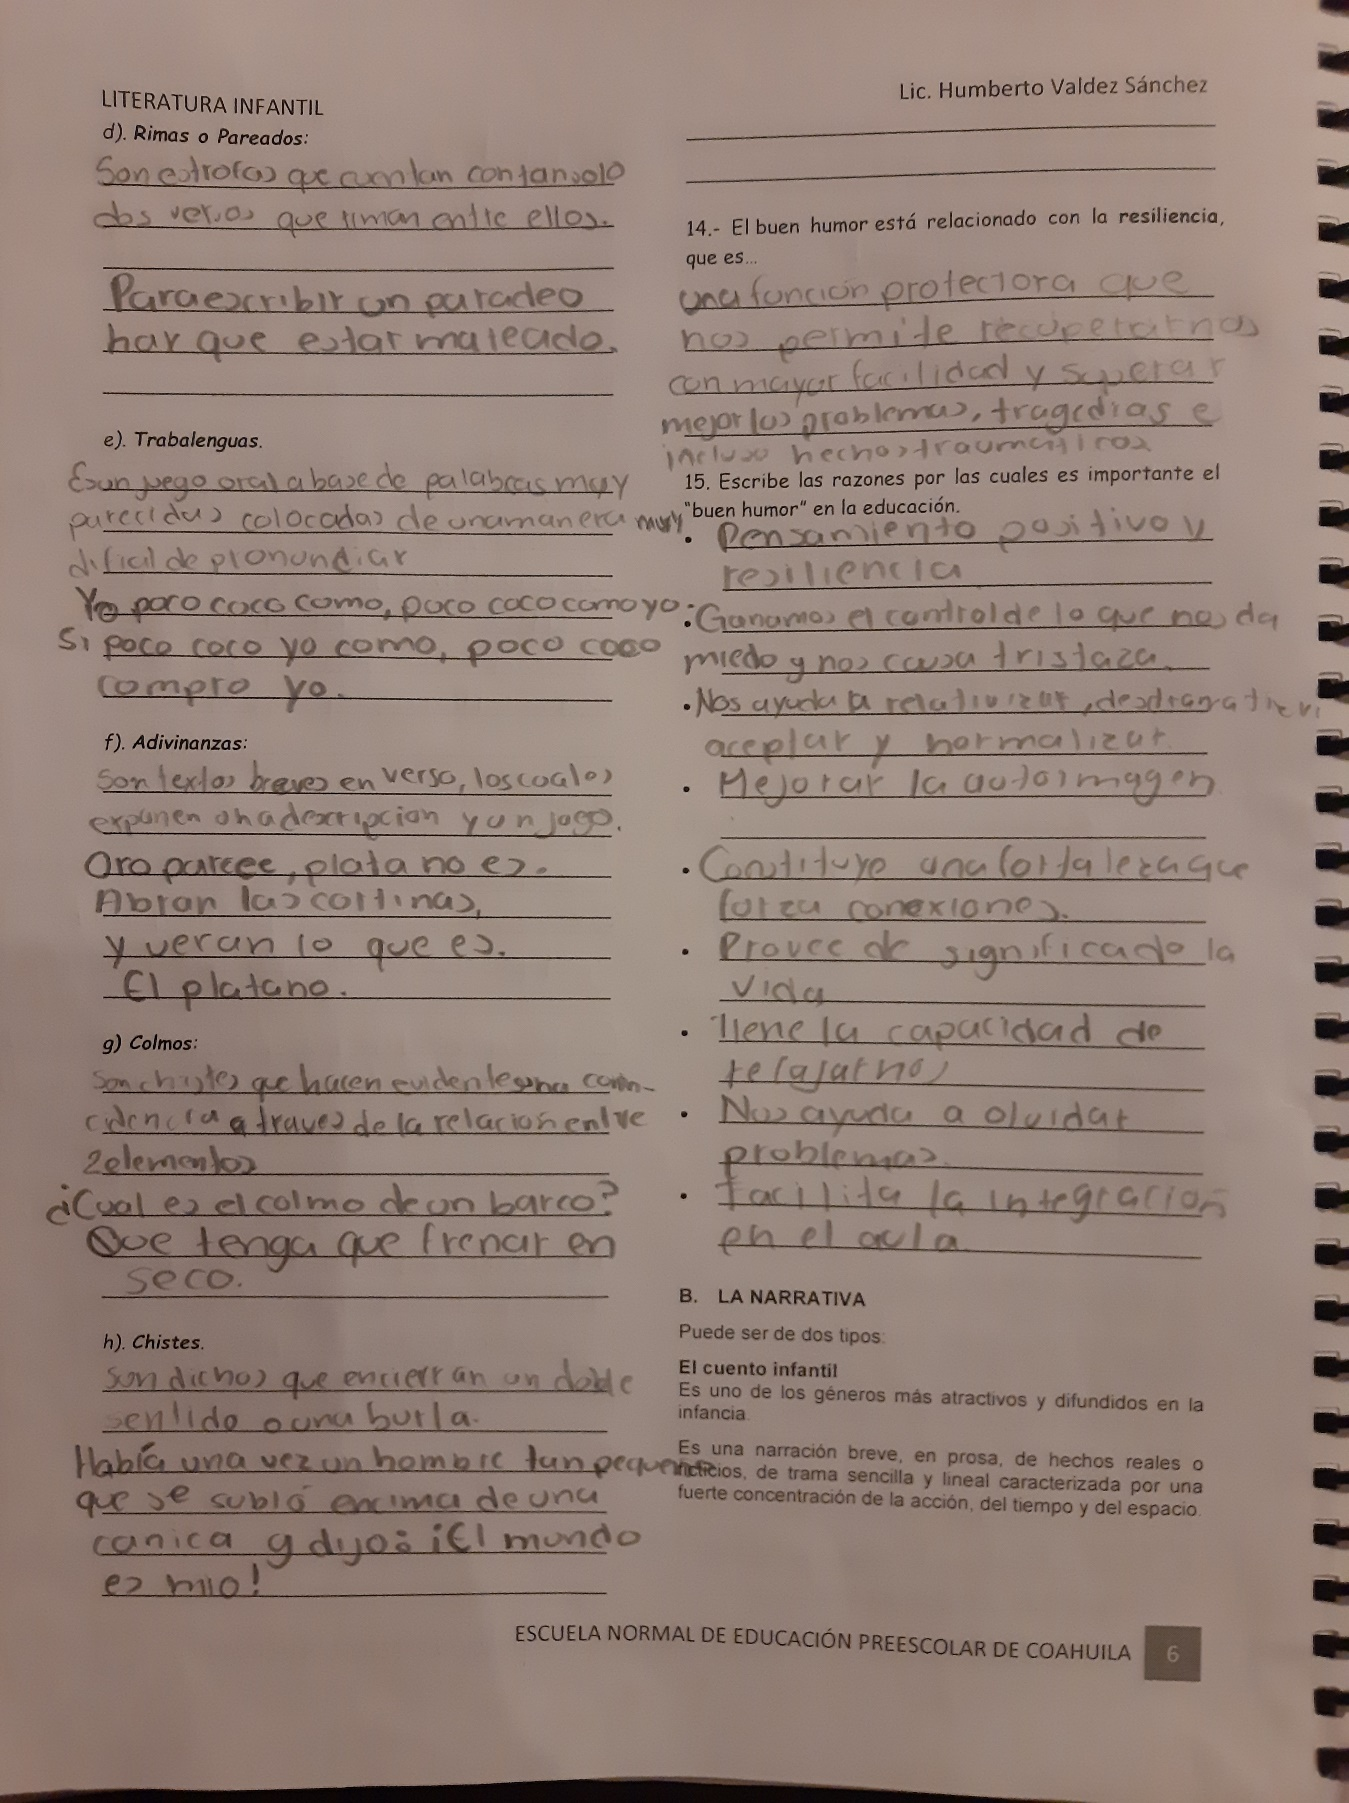 LITERATURA INFANTIL
Lic. Humberto Valdez Sánchez
d). Rimas o Pareados:
Son estrofas que cuentan con tan solo
dos versos que riman entre ellos.
Para escribir un paradeo
hay que estar maleado.
e). Trabalenguas.
Es un juego oral a base de palabras muy
parecidas colocadas de una manera muy
dificial de pronundiar
Yo poro coco como, poco coco como yo.
Si poco coco yo como, poco coco
compro yo.
f). Adivinanzas:
son textos breves en verso, los cuales
exponen una descripcion y un jugo.
Oro parcee, plata no es.
Abran las cortinas,
y veran lo que es.
El platano.
g) Colmos:
son chistes que hacen evidente una coin-
cidencia a traves de la relacion entre
2 elementos
¿Cual es el colmo de un barco?
Que tenga que frenar en
seco.
h). Chistes.
son dichos que encierran un doble
sentido o una burla.
Había una vez un hombre tan pequeño
que se subió encima de una
canica y dijo: ¡El mundo
es mio!
14.- El buen humor está relacionado con la resiliencia,
que es...
una función protectora que
nos permite recuperarnos
con mayor facilidad y superar
mejor los problemas, tragedias e
incluso hechos traumáticos
15. Escribe las razones por las cuales es importante el
"buen humor" en la educación.
• Pensamiento positivo y
resiliencia
• Ganamos el control de lo que nos da
miedo y nos causa tristaza.
• Nos ayuda a relativizar,
aceptar y normalizar.
• Mejorar la autoimagen
• Constituye una fortaleza que
forza conexiones.
• Provee de significado la
vida
• Tiene la capacidad de
relajarnos
• Nos ayuda a olvidar
problemas.
• facilita la integracion
en el aula.
B. LA NARRATIVA
Puede ser de dos tipos:
El cuento infantil
Es uno de los géneros más atractivos y difundidos en la
infancia.
Es una narración breve, en prosa, de hechos reales o
ficticios, de trama sencilla y lineal caracterizada por una
fuerte concentración de la acción, del tiempo y del espacio.
ESCUELA NORMAL DE EDUCACIÓN PREESCOLAR DE COAHUILA 6